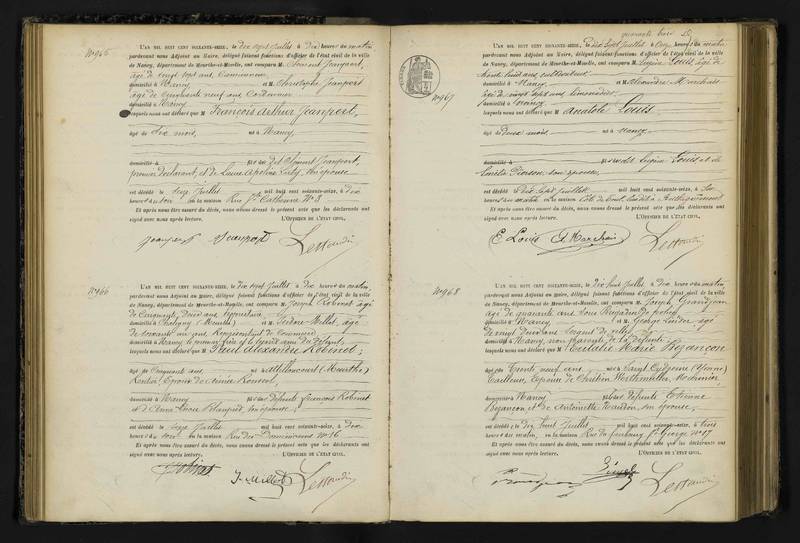 Nº 965
L'AN MIL HUIT CENT SOIXANTE-SEIZE, le dix sept juillet à dix heures du matin
pardevant nous Adjoint au Maire, délégué faisant fonctions d'officier de l'état civil de la ville
de Nancy, département de Meurthe-et-Moselle, ont comparu M. Clément Jeanpert,
âgé de vingt sept ans
domicilié à Nancy et M. Christophe Jeanpert
âgé de cinquante neuf ans Cordonnier
domicilié à Nancy
lesquels nous ont déclaré que M François Arthur Jeanpert,
âgé de dix mois, né à Nancy
domicilié à fils de Clément Jeanpert,
premier déclarant, et de son épouse
est décédé le seize juillet mil huit cent soixante-seize, à dix
heures du soir en la maison Rue Ste Catherine Nº 8
Et après nous être assuré du décès, nous avons dressé le présent acte que les déclarants ont
signé avec nous après lecture. L'OFFICIER DE L'ÉTAT CIVIL,
Jeanpert Jeanpert
Nº 966
L'AN MIL HUIT CENT SOIXANTE-SEIZE, le dix sept juillet à dix heures du matin
pardevant nous Adjoint au maire, délégué faisant fonctions d'officier de l'état civil de la ville
de Nancy, département de Meurthe-et-Moselle, ont comparu M. Joseph Robinet âgé
de cinquante deux ans
domicilié à (Meurthe) et M. Isidore Millot, âgé
de soixante un ans, Représentant de Commerce
domicilié à Nancy le premier frère et le second ami du défunt,
lesquels nous ont déclaré que M Paul Alexandre Robinet,
âgé de cinquante ans né à Attilloncourt (Meurthe)
Rentier, Epoux de
domicilié à Nancy fils des défunts François Robinet
et d' son épouse
est décédé le seize juillet mil huit cent soixante-seize, à dix
heures du soir en la maison Rue des Dominicains Nº 16
Et après nous être assuré du décès, nous avons dressé le présent acte que les déclarants ont
signé avec nous après lecture. L'OFFICIER DE L'ÉTAT CIVIL,
Robinet J. Millot
quarante trois
Nº 967
L'AN MIL HUIT CENT SOIXANTE-SEIZE, le dix sept juillet à onze heures du matin
pardevant nous Adjoint au Maire, délégué faisant fonctions d'officier de l'état civil de la ville
de Nancy, département de Meurthe-et-Moselle, ont comparu M. Eugène Louis, âgé de
trente huit ans cultivateur
domicilié à Nancy et M. Alexandre Marchais
âgé de vingt sept ans limonadier
domicilié à Nancy
lesquels nous ont déclaré que M Anatole Louis
âgé de deux mois né à Nancy
domicilié à fils de Eugène Louis et de
Amélie Pierson, son épouse
est décédé le dix sept juillet mil huit cent soixante-seize, à six
heures du matin en la maison Côte de Toul, lieudit à
Et après nous être assuré du décès, nous avons dressé le présent acte que les déclarants ont
signé avec nous après lecture. L'OFFICIER DE L'ÉTAT CIVIL,
E Louis A Marchais
Nº 968
L'AN MIL HUIT CENT SOIXANTE-SEIZE, le dix huit juillet à dix heures du matin
pardevant nous Adjoint au maire, délégué faisant fonctions d'officier de l'état civil de la ville
de Nancy, département de Meurthe-et-Moselle, ont comparu M. Joseph Grandjean
âgé de quarante ans Sous Brigadier de police
domicilié à Nancy et M. George âgé
de vingt deux ans Sergent de ville
domicilié à Nancy, non parents de la défunte
lesquels nous ont déclaré que M Eulalie Marie Bezançon
âgée de trente neuf ans née à Saint (Yonne)
Tailleuse, Epouse de
domiciliée à Nancy fille des défunts Etienne
Bezançon, et de Antoinette son épouse,
est décédée le dix huit juillet mil huit cent soixante-seize, à trois
heures du matin, en la maison Rue du faubourg St George Nº 17
Et après nous être assuré du décès, nous avons dressé le présent acte que les déclarants ont
signé avec nous après lecture. L'OFFICIER DE L'ÉTAT CIVIL,